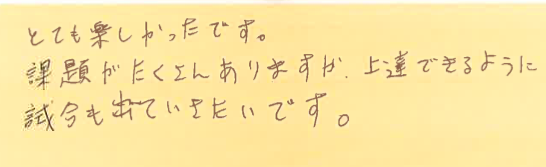 とても楽しかったです。
課題がたくさんありますが、上達できるように
試合も出ていきたいです。